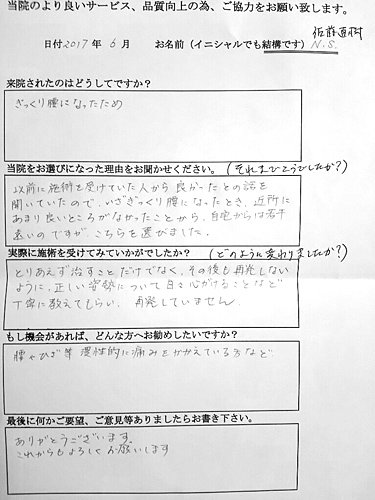 当院のより良いサービス、品質向上の為、ご協力をお願い致します。
日付 2017 年 6 月 お名前（イニシャルでも結構です）N.S.
来院されたのはどうしてですか？
ぎっくり腰になったため
当院をお選びになった理由をお聞かせください。（それまでどうでしたか？）
以前に施術を受けていた人から良かったとの話を
聞いていたので、いざぎっくり腰になったとき、近所に
あまり良いところがなかったことから、自宅からは若干
遠いのですが、こちらを選びました。
実際に施術を受けてみていかがでしたか？（どのように変わりましたか？）
とりあえず治すことだけでなく、その後も再発しない
ように、正しい姿勢について日々心がけることなど
丁寧に教えてもらい、再発していません。
もし機会があれば、どんな方へお勧めしたいですか？
腰やひざ等 慢性的に痛みをかかえている方など
最後に何かご要望、ご意見等ありましたらお書き下さい。
ありがとうございます。
これからもよろしくお願いします